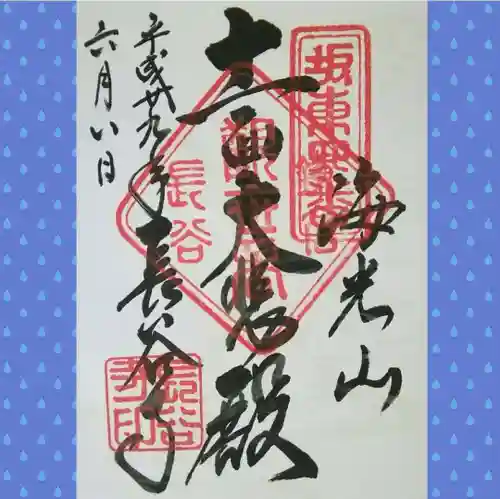 坂東第四番
海光山
十一面大悲殿
長谷寺
平成廿九年
六月八日
長谷
長谷寺印